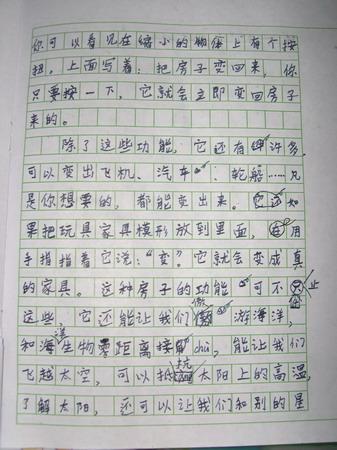 你可以看见在缩小的物体上有个按
扭。上面写着：把房子变回来，你
只要按一下，它就会立即变回房子
来的。
除了这些功能，它还有许多，
可以变出飞机、汽车、轮船……凡
是你想要的，都能变出来。它还如
果把玩具家具模形放到里面，用
手指指着它说：“变”它就会变成真
的家具。这种房子的功能可不只止
这些，它还能让我们遨游海洋，
和海洋生物零距离接触chù，能让我们
飞越太空，可以抵抗太阳上的高温，
了解太阳，还可以让我们和别的星